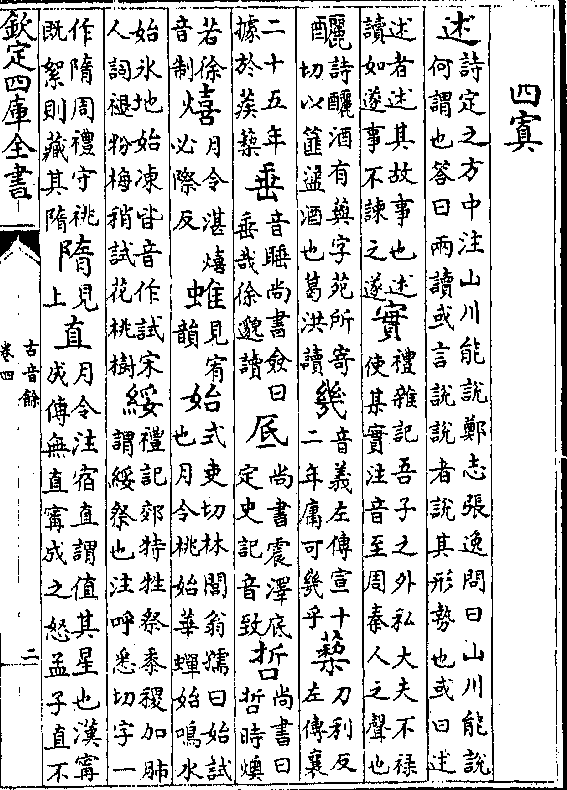 四寘
述詩定之方中注山川能說鄭志張逸問曰山川能說
何謂也答曰兩讀或言說說者說其形勢也或曰述
述者述其故事也述
讀如遂事不諫之遂
實禮雜記吾子之外私大夫不祿
使某實注音至周秦人之聲也
釃詩釃酒有藇字苑所寄
切以篚盪酒也葛洪讀
幾音義左傳宣十
二年庸可幾乎
蔾力利反
左傳襄
二十五年
據於蒺蔾
垂音睡尚書僉曰
垂哉徐邈讀
厎尚書震澤底
定史記音致
哲尚書曰
哲時燠
若徐
音制
熺月令湛熺
必際反
蜼見宥
韻
始式吏切林閭翁孺曰始試
也月令桃始華蟬始鳴水
始冰地始凍皆音作試宋
人詞褪粉梅稍試花桃樹
綏禮記郊特牲祭黍稷加肺
謂綏祭也注呼恚切字一
作隋周禮守祧
既祭則藏其隋
隋見
上
直月令注宿直謂值其星也漢甯
成傳無直甯成之怒孟子直不
欽定四庫全書
古音餘
卷四
二